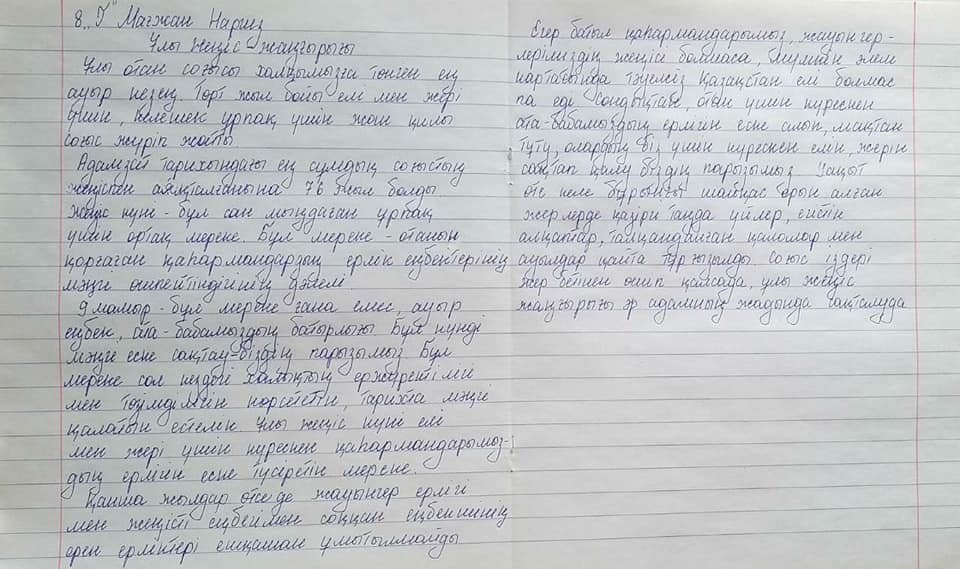 8 "Г" Мағжан Наргиз
Ұлы жеңіс жаңғырығы
Ұлы отан соғысы халқымызға төнген ең
ауыр кезең. Төрт жыл бойы ел мен жері
үшін, келешек ұрпақ үшін жан қилы
соғыс жүріп жатты.
Адамзат тарихындағы ең сұмдық соғыстың
жеңіспен аяқталғанына 76 жыл болды.
Жеңіс күні - бұл сан мыңдаған ұрпақ
үшін ортақ мереке. Бұл мереке - отанын
қорғаған қаһармандардың ерлік еңбектерінің
мәңге өшпейтіндігінің дәлелі.
9 мамыр - бұл мереке ғана емес, ауыр
еңбек, ата-бабамыздың батырлығы Бұл күнді
мәңге есте сақтау-біздің парызымыз Бұл
мереке сол кездегі халықтың ержүректілігі
мен төзімділігін көрсететін, тарихта мәңге
қалатын естелік. Ұлы жеңіс күні елі
мен жері үшін күрескен қаһармандарымыз-
дың ерлігін еске түсіретін мереке.
Қанша жылдар өтсе де жауынгер ерлігі
мен жеңісті еңбегімен соққан еңбекшінің
ерен ерліктері ешқашан ұмытылмайды
Егер батыл қаһармандарымыз, жауынгер-
леріміздің жеңісі болмаса, бүгінгі әлем
картасында тәуелсіз Қазақстан елі болмас
па еді Сондықтан, отан үшін күрескен
ата-бабамыздың ерлігін еске алып, мақтан
тұту, олардың біз үшін күрескен елін, жерін
сақтап қалу біздің парызымыз Уақыт
өте келе бұрынғы шайқас орын алған
жерлерде қазіргі таңда үйлер, егістін
алқаптар, талқандалған қалалар мен
ауылдар қайта тұрғызылды. Соғыс іздері
жер бетінен өшіп қалсада, ұлы жеңіс
жаңғырығы әр адамның жадында сақталуда